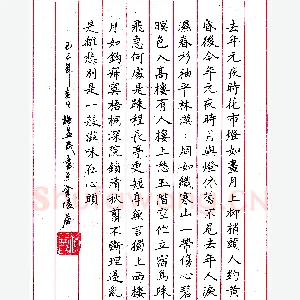 去年元夜時花市燈如晝月上柳梢頭人約黃
昏後今年元夜時月與燈依舊不見去年人淚
濕春衫袖平林漠〻烟如織寒山一帶傷心碧
暝色入高樓有人樓上愁玉階空佇立宿鳥歸
飛急何處是歸程長亭更短亭無言獨上西樓
月如鈎寂寞梧桐深院鎖清秋剪不斷理還亂
是離愁別是一般滋味在心頭